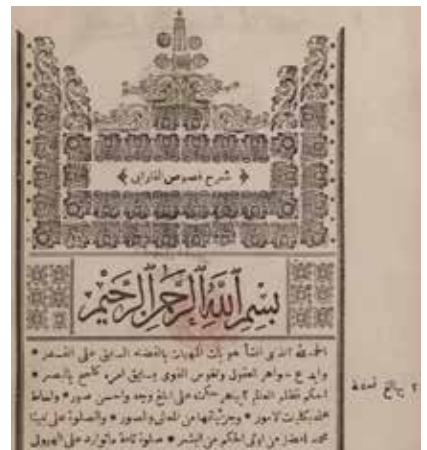 ﴿ شرح فصوص الفارابى ﴾
بسم الله الرحمن الرحيم
الحمد لله الذى انشأ هويات المهيات بالقضاء السابق على القدر *
وابدع جواهر العقول ونفوس القوى بسابق امره كلمح بالبصر *
احكم نظام العالم على ابلغ وجه واحسن صور * واحاط
بكليات الامور * وجزئياتها من المعانى والصور * والصلوة على نبينا
محمد من اوتى الحكم من البشر * صلوة على الهيولى